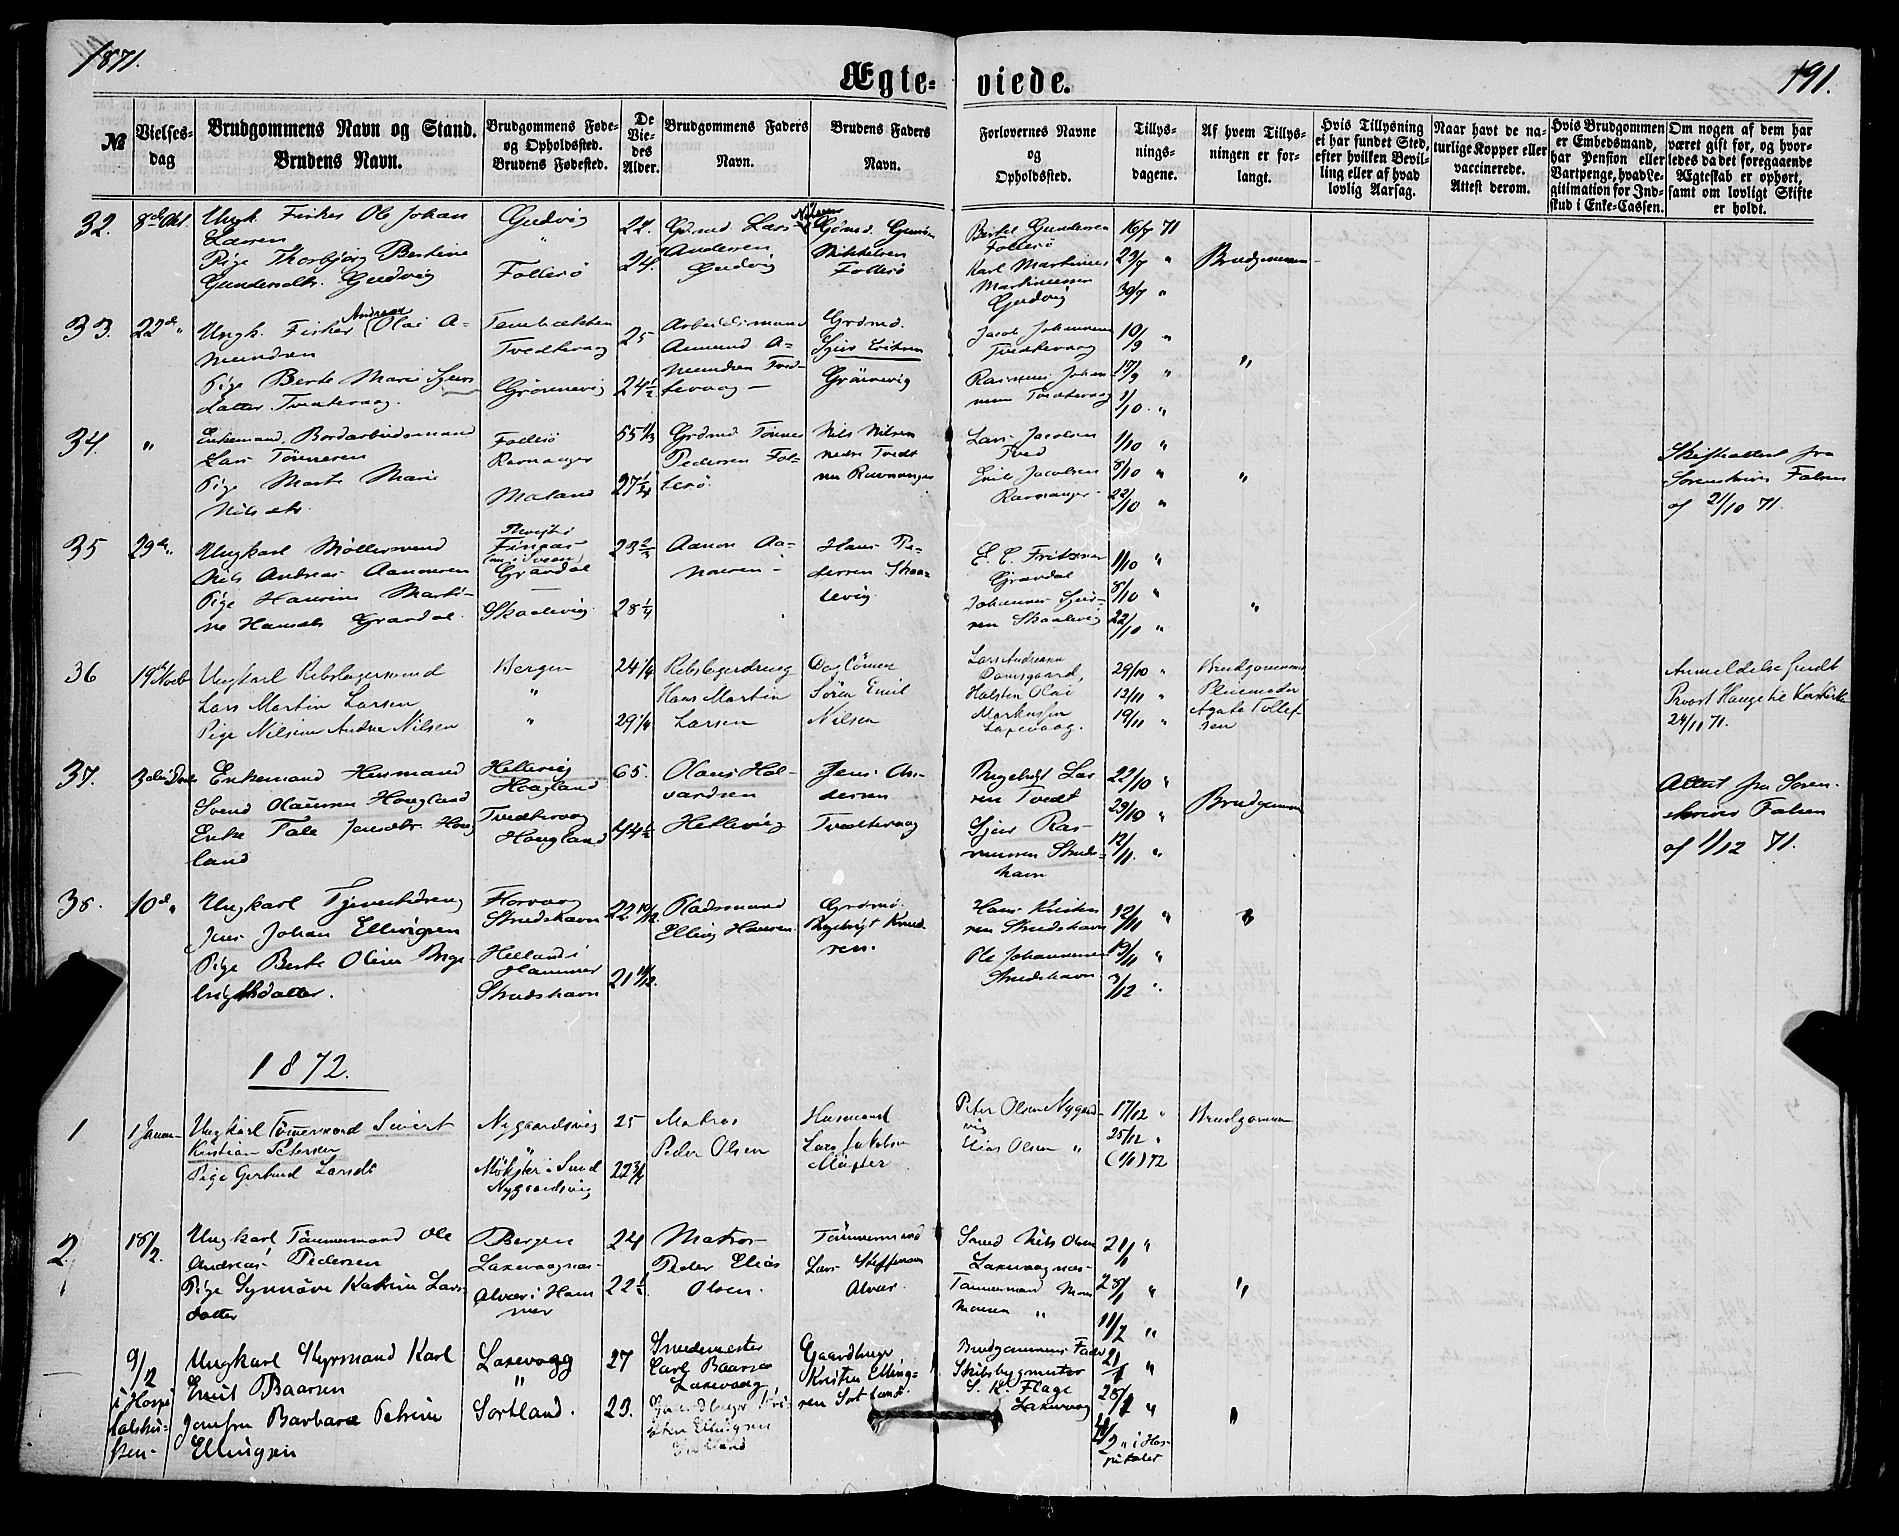 1871.
Ægte-
viede.
191.
№
Vielses-
dag
Brudgommens Navn og Stand.
Brudens Navn.
Brudgommens Føde-
og Opholdssted.
Brudens Fødested.
De
Vie-
des
Alder.
Brudgommens Faders
Navn.
Brudens Faders
Navn.
Forlovernes Navne
og
Opholdssted.
Tillys-
nings-
dagene.
Af hvem Tillys-
ningen er for-
langt.
Hvis Tillysning
ei har fundet Sted,
efter hvilken Bevil-
ling eller af hvad
lovlig Aarsag.
Naar havt de na-
turlige Kopper eller
vaccinerede.
Attest derom.
Hvis Brudgommen
er Embedsmand,
har Pension eller
Vartpenge, hvad Le-
gitimation for Ind-
skud i Enke-Cassen.
Om nogen af dem har
været gift før, og hvor-
ledes da det foregaaende
Ægteskab er ophørt,
samt om lovligt Skifte
er holdt.
32.
8de Okt.
Ungk. Fisker Ole Johan
Larsen
Pige Thorbjørg Bertine
Gundersdtr. Gudvig
Gudvig
"
Follesø
22.
24.
Grdmd Lars
Andersen
Gudvig
Grdmd. Gunder
Mikkelsen
Follesø
Bertel Gundersen
Follesø
Karl Martinus
Martinussen
Gudvig
16/7 71
23/7 "
30/7 "
Brudgommen
33.
22de "
Ungk. Fisker Olai A-
Andreas
mundsen
Pige Berte Marie Sjurs-
datter Tvedtevaag.
Tvedtevaag
Grønnevig
25
24 1/2
Arbeidsmand
Amund A-
mundsen Tved-
tevaag
Grdmd.
Sjur Eriksen
Grönnevig
Jacob Johannesen
Tvedtevaag
Rasmus Johan-
nesen Tvedtevaag
10/9 "
17/9 "
1/10 "
"
34.
"
Enkemand. Bordarbeidsmand
Lars Tönnesen
Pige Marte Marie
Nilsdtr.
Follesø
Ravnanger
Maland
55 1/3
27 1/4
Grdmd Tönnes
Pedersen Fol-
lesø.
Nils Nilsen
Ravnanger
Lars Jacobsen
Tved
Erik Jacobsen
Ravnanger
1/10 "
8/10 "
22/10 "
"
Skifteattest fra
Sorenskriver Falsen
af 21/10 71.
35
29de "
Ungkarl Møllersvend
Nils Andreas Aanonsen
Pige Hansine Marti-
ne Hansdtr Gravdal.
Gravdal
Skaalevig
23 2/3
28 1/4
Aanon Aa-
nonsen
Hans Pe-
dersen Skaa-
levig
E. C. Fritzner
Gravdal
Johannes
Skaalevig
1/10 "
8/10 "
22/10 "
"
36
19de Novb
Ungkarl Rebslagersvend
Lars Martin Larsen
Pige Nilsine Andrea Nilsen
Bergen
"
"
24 1/4
29 1/4
Rebslagerdreng
Hans Martin
Larsen
Søren Emil
Nilsen
Lars Andreasen
Damsgaard,
Halsten Olai
Markussen
Laxevaag.
29/10 "
12/11 "
19/11 "
Brudgommens
Pleiemoder
Agate Tollef-
sen
Anmeldelse sendt
Provst Hauge til Korskirken
24/11 71.
37.
Enkemand Husmand
Svend Olaisen Hougland
Enke Tale Jensdtr. Houg-
land
Hellevig
Hougland
Tvedtevaag
Hougland
65.
44 1/2
Olai Hal-
vardsen
Hellevig
Jens An-
dersen
Tvedtevaag
Ingebrigt Lar-
sen Tvedt
Sjur Ras-
mussen Struds-
havn
22/10 "
29/10 "
12/11 "
Brudgommen
Attest fra Soren-
skriver Falsen
af 1/12 71.
38.
10de "
Ungkarl Tjenestedreng
Jens Johan Ellingsen
Pige Berte Oline Inge-
brigtsdatter.
Florvaag
Strudshavn
Hellandi
Hammer
Strudshavn
22 10/12
21 11/12.
Pladsmand
Elling Hansen
Grdmd.
Ingebrigt Knud-
sen.
Hans Kristen-
sen Strudshavn
Ole Johannesen
Strudshavn
12/11 "
19/11 "
3/12 "
"
1872.
1
1 Januar
Ungkarl Tömmermand Sivert
Kristian Petersen
Pige Gertrud Larsdt
Nygaardsvig
"
Møkster i Sund
Nygaardsvig
25
22 3/4
Matros
Peder Olsen
Husmand
Lars Jakobsen
Møxter
Peter Olsen Nygaards-
vig
Elias Olsen "
17/12 "
25/12 "
(1/1) 72
Brudgommen
2.
18/2.
Ungkarl Tömmermand Ole
Andreas Pedersen
Pige Synnöve Katrine Lars-
datter
Bergen
Laxevaagnæs
Alvær i Ham-
mer
24
22 1/2
Matros
Peder Elias
Olsen.
Tömmermand
Lars Steffensen
Alvær
Smed Nils Olsen
Laxevaagnæs
Tömmermand Mons
Monsen "
21/1 "
28/1 "
11/2 "
"
9/2
i Hospi
talskir-
ken-
Ungkarl Styrmand Karl
Emil Baarsen
Jomfru Barbara Petrine
Ellingsen
Laxevaag
"
Sortland.
27
23.
Smedemester
Carl Baarsen
Laxevaag
Gaardbruger Kri-
sten Ellingsen
Sortland
Gaardbruger
Kristen Elling-
sen Sortland.
Brudgommens Fader
Skibsbygmester
S. K. Flage
Laxevaag
21/1 "
28/1 "
4/2 " i Hos-
pitalet
"